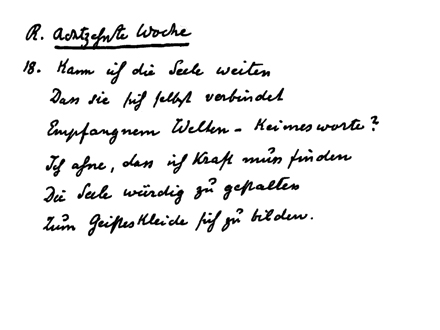 R. Achtzehnte Woche
18. Kann ich die Seele weiten
Dass sie sich selbst verbindet
Empfangnem Welten-Keimesworte?
Ich ahne, dass ich Kraft muss finden
Die Seele würdig zu gestalten
Zum Geisteskleide sich zu bilden.